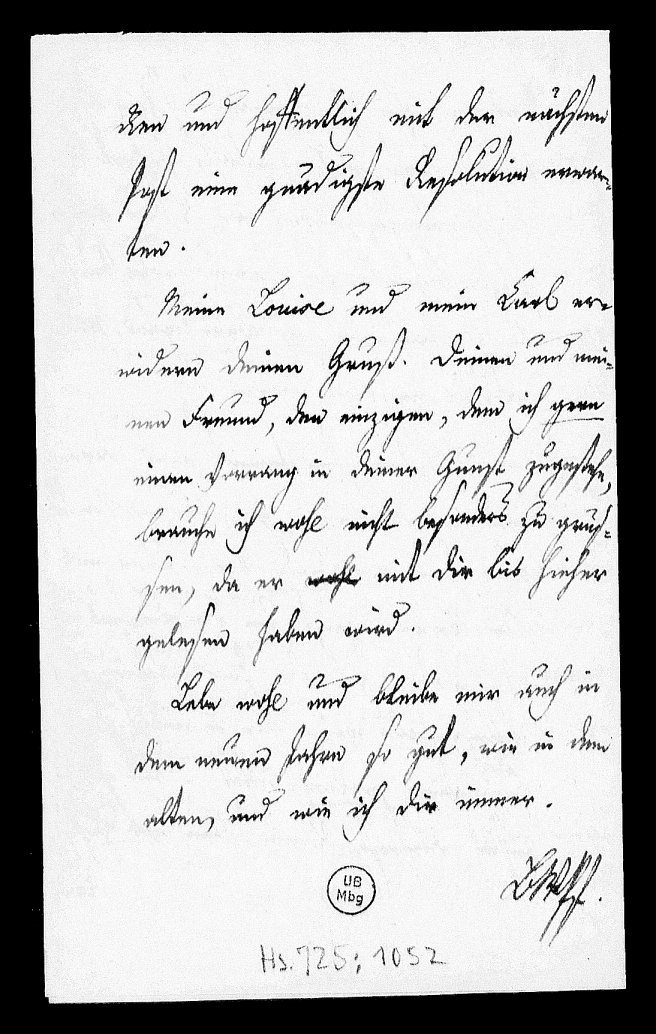 ken und hoffentlich mit der nächsten
Post eine gnädigste Resolution erwar-
ten.
Meine Louise und mein Carl er-
widern deinen Gruß. Deinen und mei-
nen Freund, den einzigen, dem ich gern
einen Vorrang in deiner Gunst zugestehe,
brauche ich wohl nicht besonders zu grüs-
sen, da er mit dir bis hieher
gelesen haben wird.
Lebe wohl und bleibe mir auch in
dem neuen Jahre so gut, wie in dem
alten, und wie ich dir immer.
UB
Mbg
Hs. 725: 1052